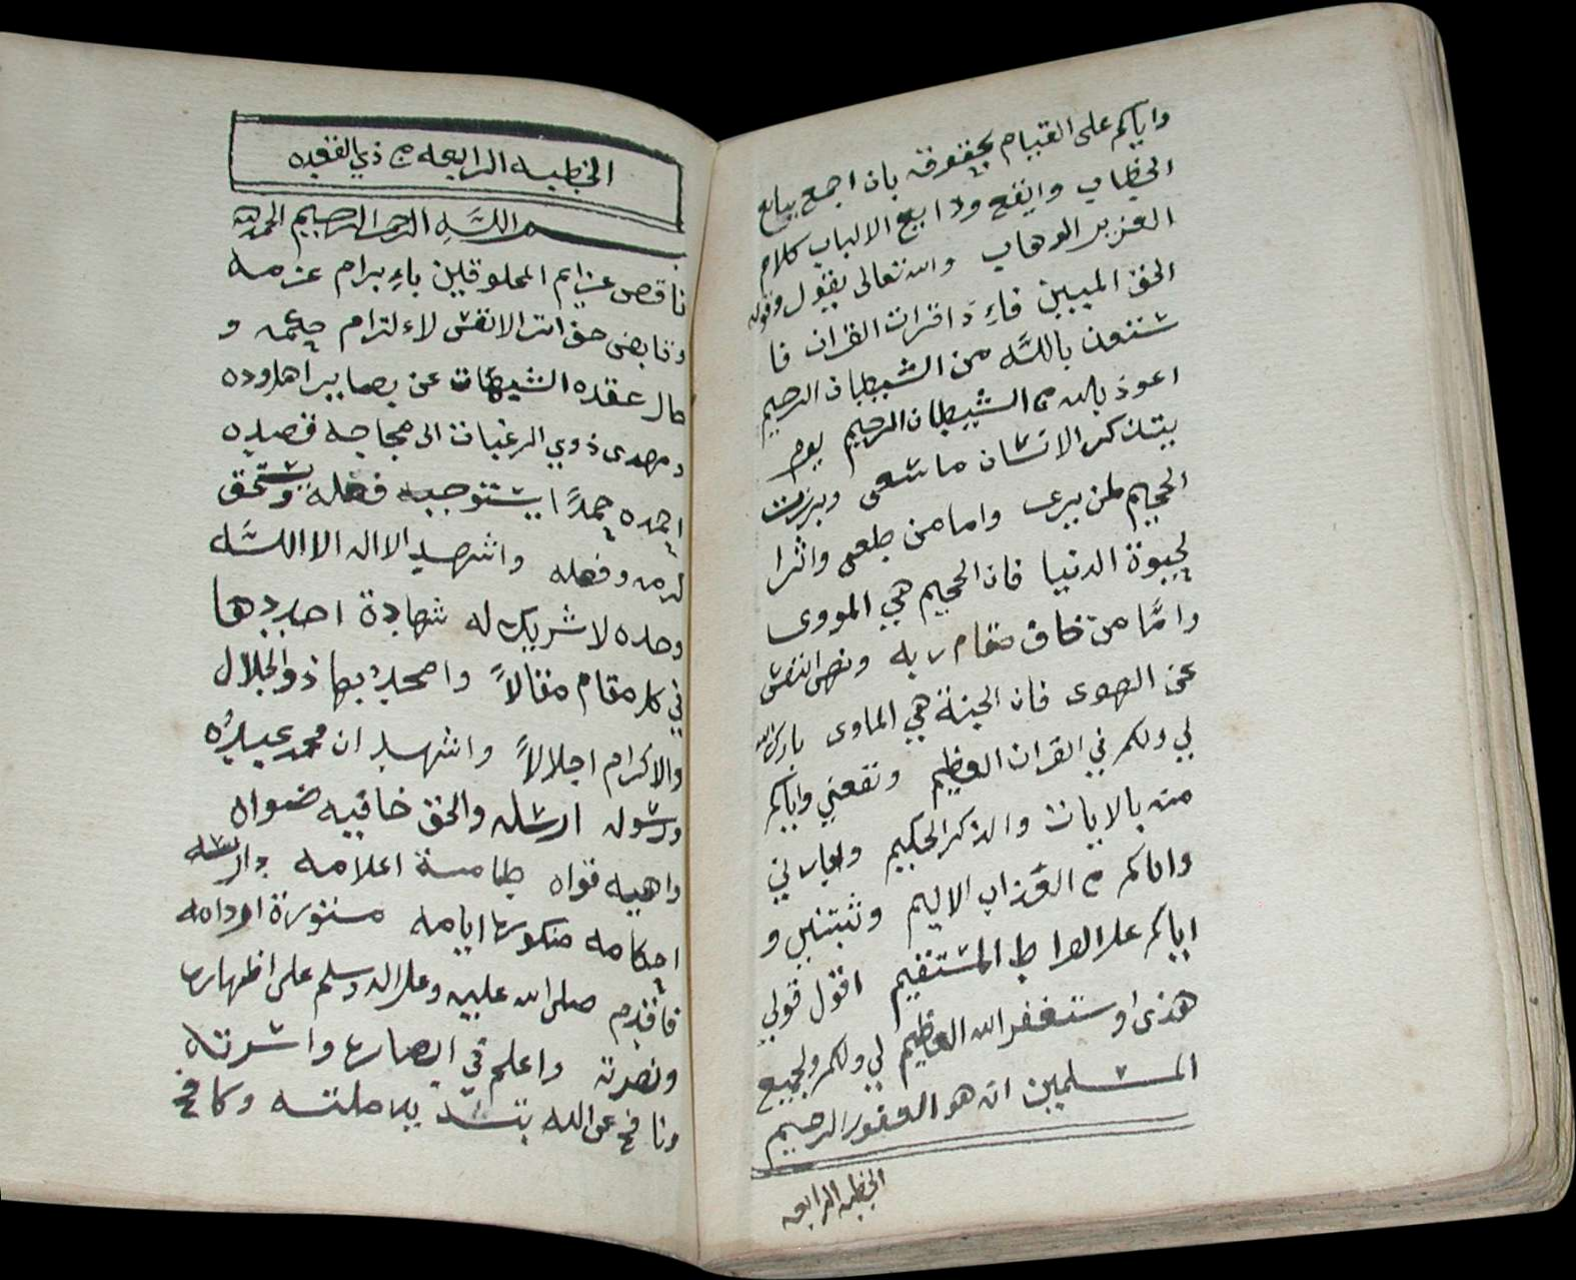 واياكم على القيام بحقوقه بان اجمع بيابع
الخطاب وانفع ودابيع الالباب كلام
العزيز الوهاب والله تعالى يقول وقوله
الحق المبين فاءِذ اقرات القران فا
ستعذ باللّه من الشيطان الرحيم
اعوذ بالله من الشيطان الرجيم يوم
يتذكر الانسان ما سعى وبرزت
الجحيم لمن يرى واما من طغى واثرا
لحيوة الدنيا فان الجحيم هي المووى
وامّا من خاف مقام ربه ونهى النفس
عن الهوى فان الجنة هي الماوى بارك الله
لي ولكم في القران العظيم ونفعني واياكم
منه بالايات والذكر الحكيم واجارني
واياكم من العذاب الاليم وثبتني و
اياكم على الصراط المستقيم اقول قولي
هذى اوستغفر الله العظيم لي ولكم ولجميع
المسلمين انه هو الغفور الرحيم
الخطبه الرابعه
الخطبه الرابعه من ذي القعده
بسم اللَّهِ الرحمن الرحيم الحمد لله
ناقص عزايم المخلوقين باءِبرام عزمه
وقابض الانفس لاءلتزام حكمه و
حال عقده الشبهات عن بصايير اهل وده
ومهدى ذوي الرغبات الى محاجه قصده
احمده حمدًا يستوجبه فضله ويستحق
كرمه وفعله واشهد الااله الا اللَّه
وحده لا شريك له شهادة اجددها
في كل مقام مقالاً بها ذو الجلال
والاكرام اجلالاً واشهد ان محمد عبدُه
ورسوله ارسله والحق خافيه ضواه
واهيه قواه طامسة اعلامه دارسه
احكامه ايامه
فاقدم صلى الله عليه وعلى اله وسلم على اظهاره
ونصرته واعلم في واسرته
ونافح عن الله وكافح